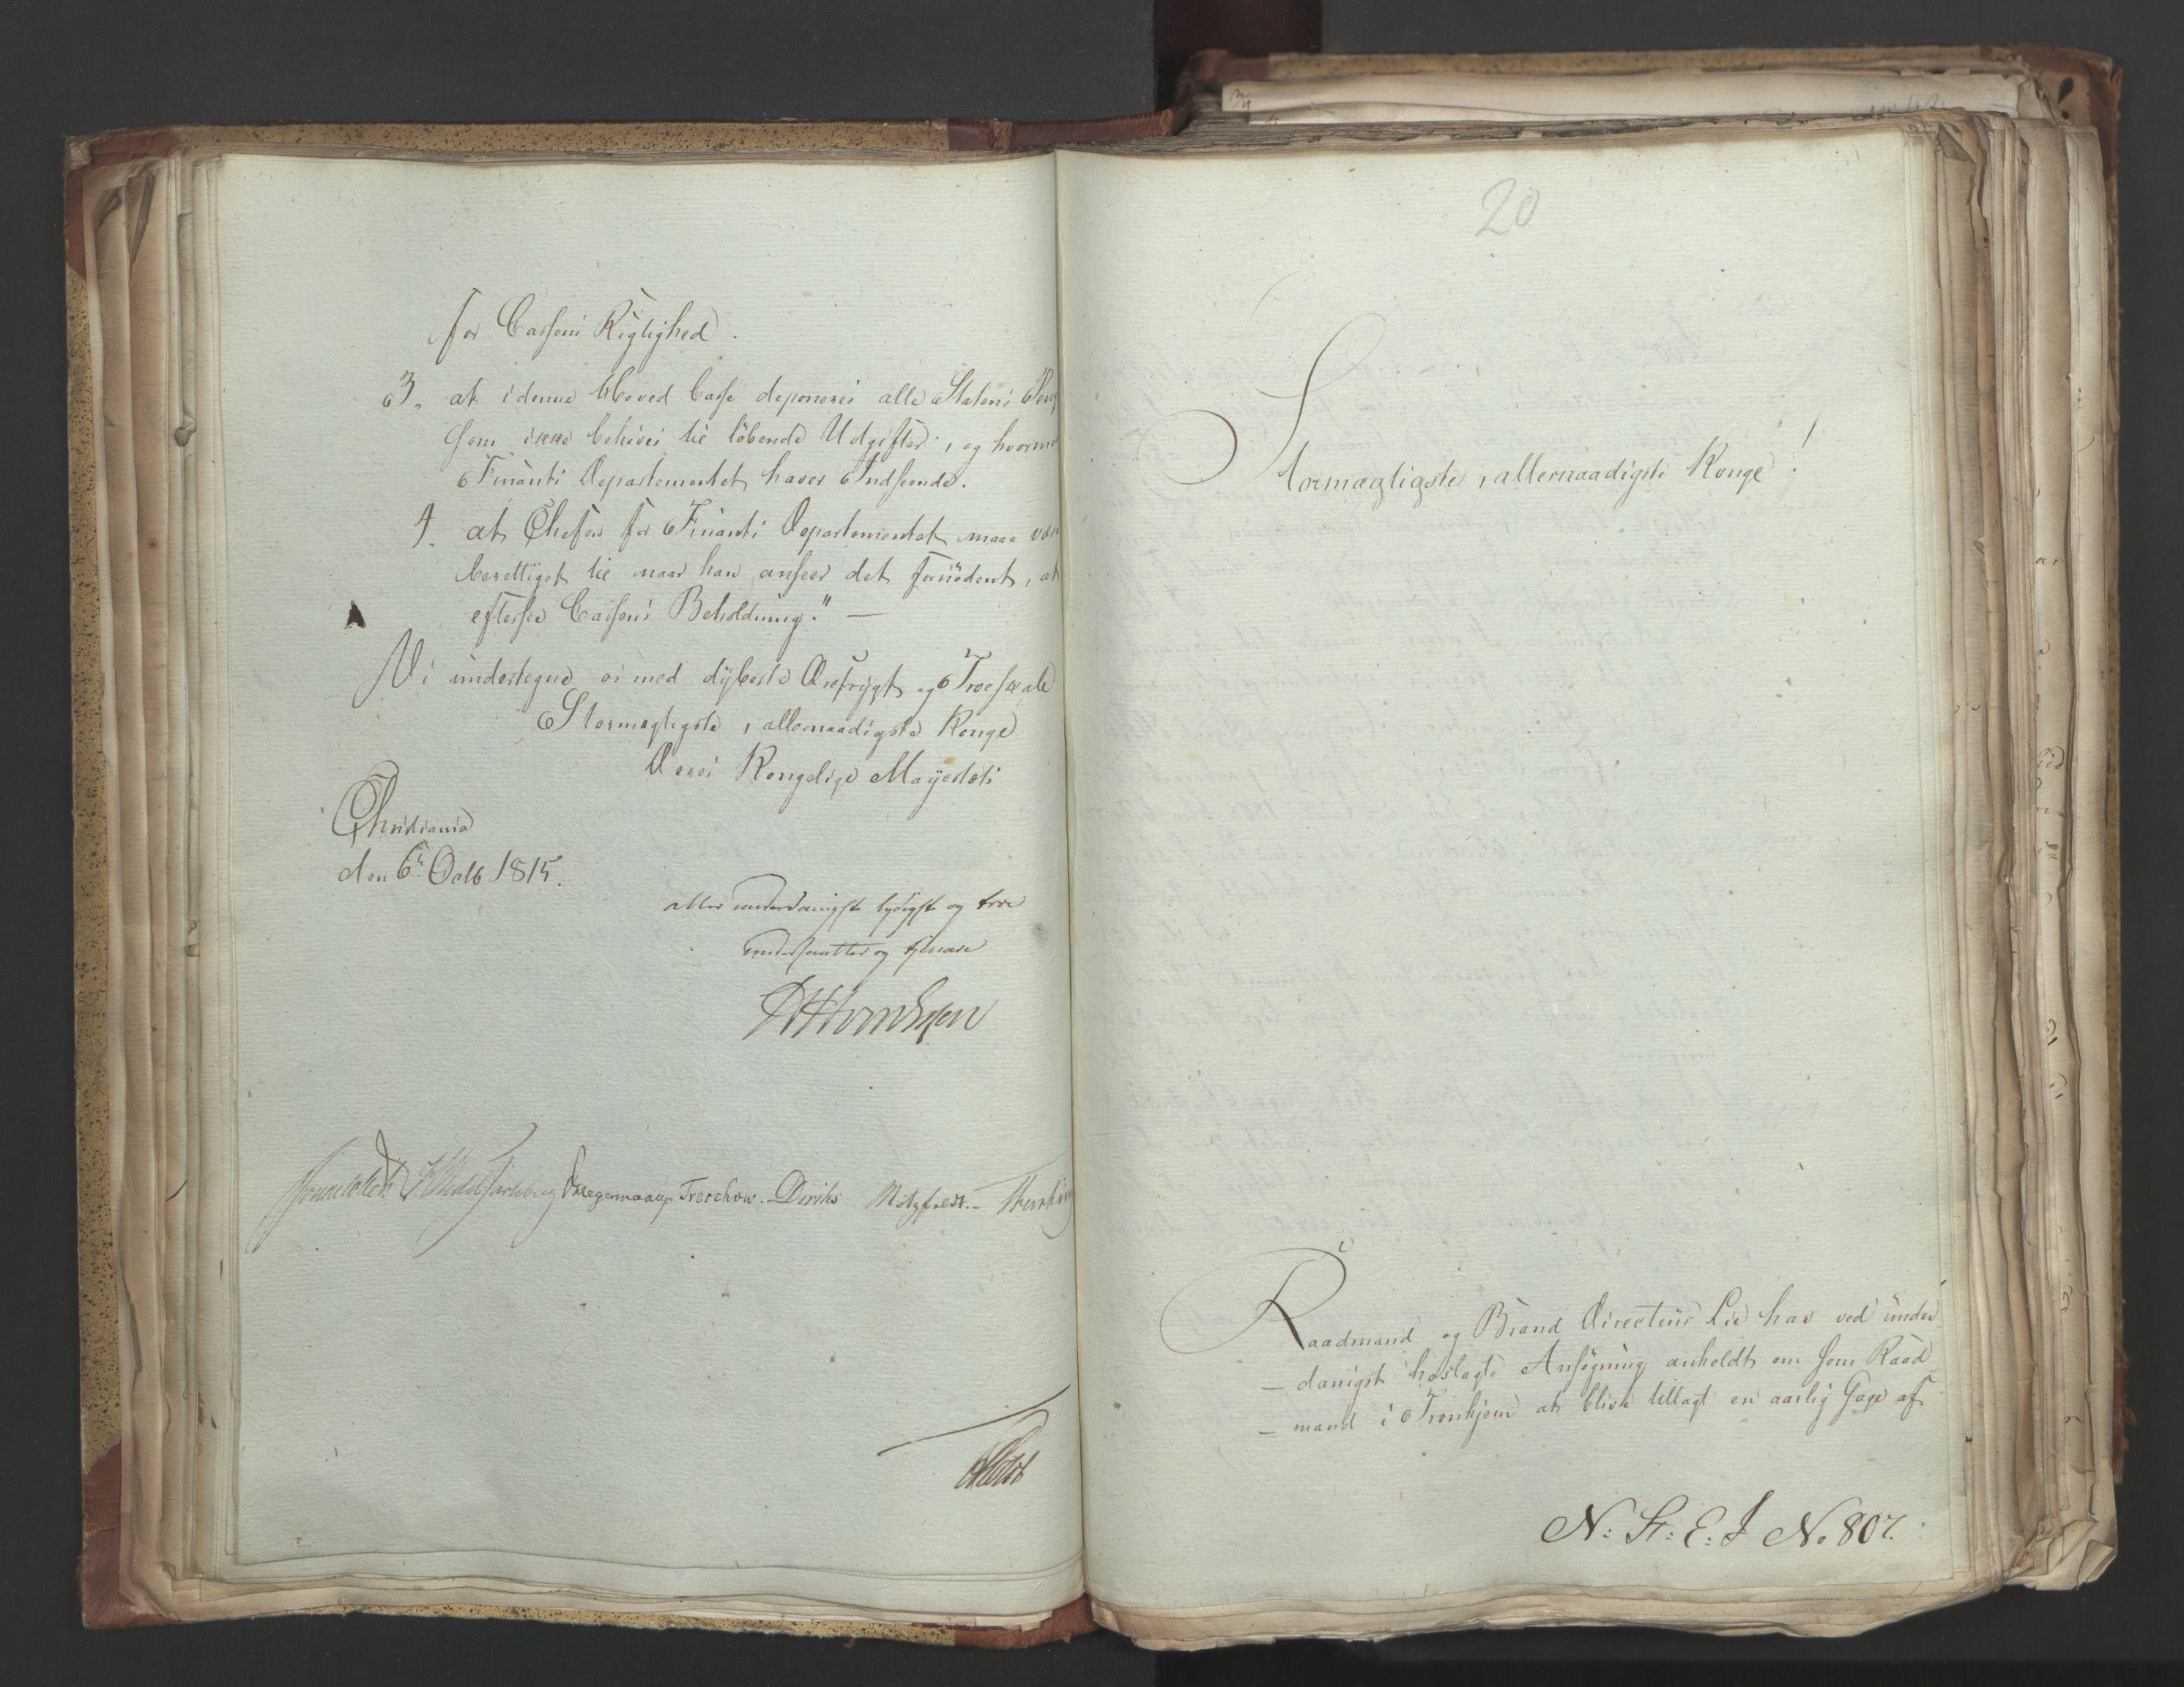 for Cassens Rigtighed.
3. at i denne Hoved Casse deponeres alle Statens Peng
som ikke behöves til löbende Udgifter, og hvorm
Finants Departementet haver Indseende.
4. at Chefen for Finants Departementet maae vær
berettiget til naar han anseer det fornödent, at
eftersee Cassens Beholdning." —
Vi undertegne os med dÿbeste Ærefrÿgt og Troeskab
Stormægtigste, allernaadigste Konge
Deres Kongelige Mayestæts
Christiania
den 6te Octb 1815.
aller underdanigste lydigste og troe
undersaatter og tienere
Sommerhielm Wedel Jarlsberg Kregemaay Treschow. Diriks Motzfeldt. -
Holst
20
Stormægtigste, allernaadigste Konge!
Raadmand og Brand Directeur Lie har ved under
- danigst hoslagte Ansögning anholdt om som Raad
- mand i Tronhjem at blive tillagt en aarlig Gage af
N: St: E. J No 807.